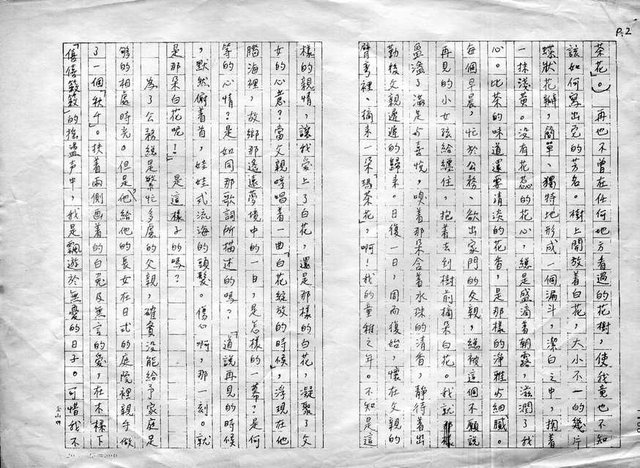 P.2
茶花」。再也不曾在任何地方看過的花樹,使我竟也不知
該如何寫出它的芳名。樹上開放着白花,大小不一的幾片
蝶狀花瓣,簡單、獨特地形成一個漏斗,潔白之中,掬着
一抹淡黃。沒有花蕊的花心,總是盛滿着朝露,滋潤了我
心。比茶的味道還要清淡的花香,是那樣的淨雅與細膩。
每個早晨,忙於公務、欲出家門的父親,總被這個不願說
再見的小女孩給纏住,抱着去到樹前摘朵白花。我就那樣
盈溢了滿足與喜悅,嗅着那朵含着水珠的清香,靜待着出
勤後父親遙遙的歸來。日復一日,周而復始,懷在父親的
臂彎裡、摘來一朵瑪茶花,啊!我的童稚之年。不知是這
樣的親情,讓我愛上了白花,還是那樣的白花,凝聚了父
女的心意?當父親哼唱着一曲「白花綻放的時候」,浮現在他
腦海裡,故鄉那遙遠夢境中的一日,是怎樣的一幕?是何
等的心情?是如同那歌詞所描述的嗎?「道說再見的時候
,默然俯着首,娃娃式流海的頭髮。傷心啊,那一刻。就
是那朵白花呢!」是這樣子的嗎?
為了公務總是繁忙多慮的父親,確實沒能給予家庭足
夠的相處時光。但是,他給他的長女在日式的庭院裡親手做
了一個「鞦千」。挾着兩側画着的白兔及無言的愛,在木樁下
「僖僖簌簌」的搖盪声中,我是飄遊於無愛的日子。可惜我不